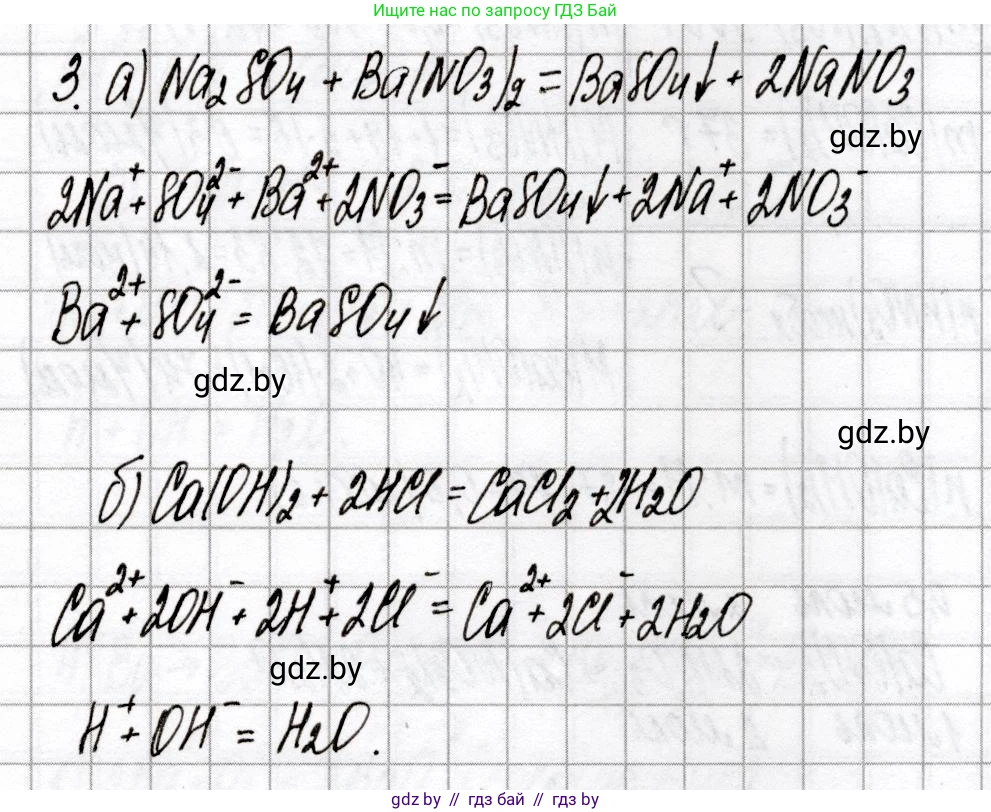 Ищите нас по запросу ГДЗ Бай
3. а) Na₂SO₄ + Ba(NO₃)₂ = BaSO₄↓ + 2NaNO₃
gdz.by
2Na⁺ + SO₄²⁻ + Ba²⁺ + 2NO₃⁻ = BaSO₄↓ + 2Na⁺ + 2NO₃⁻
Ba²⁺ + SO₄²⁻ = BaSO₄↓
gdz.by
gdz.by
б) Ca(OH)₂ + 2HCl = CaCl₂ + 2H₂O
Ca²⁺ + 2OH⁻ + 2H⁺ + 2Cl⁻ = Ca²⁺ + 2Cl⁻ + 2H₂O
gdz.by
H⁺ + OH⁻ = H₂O.
gdz.by // гдз бай // гдз by